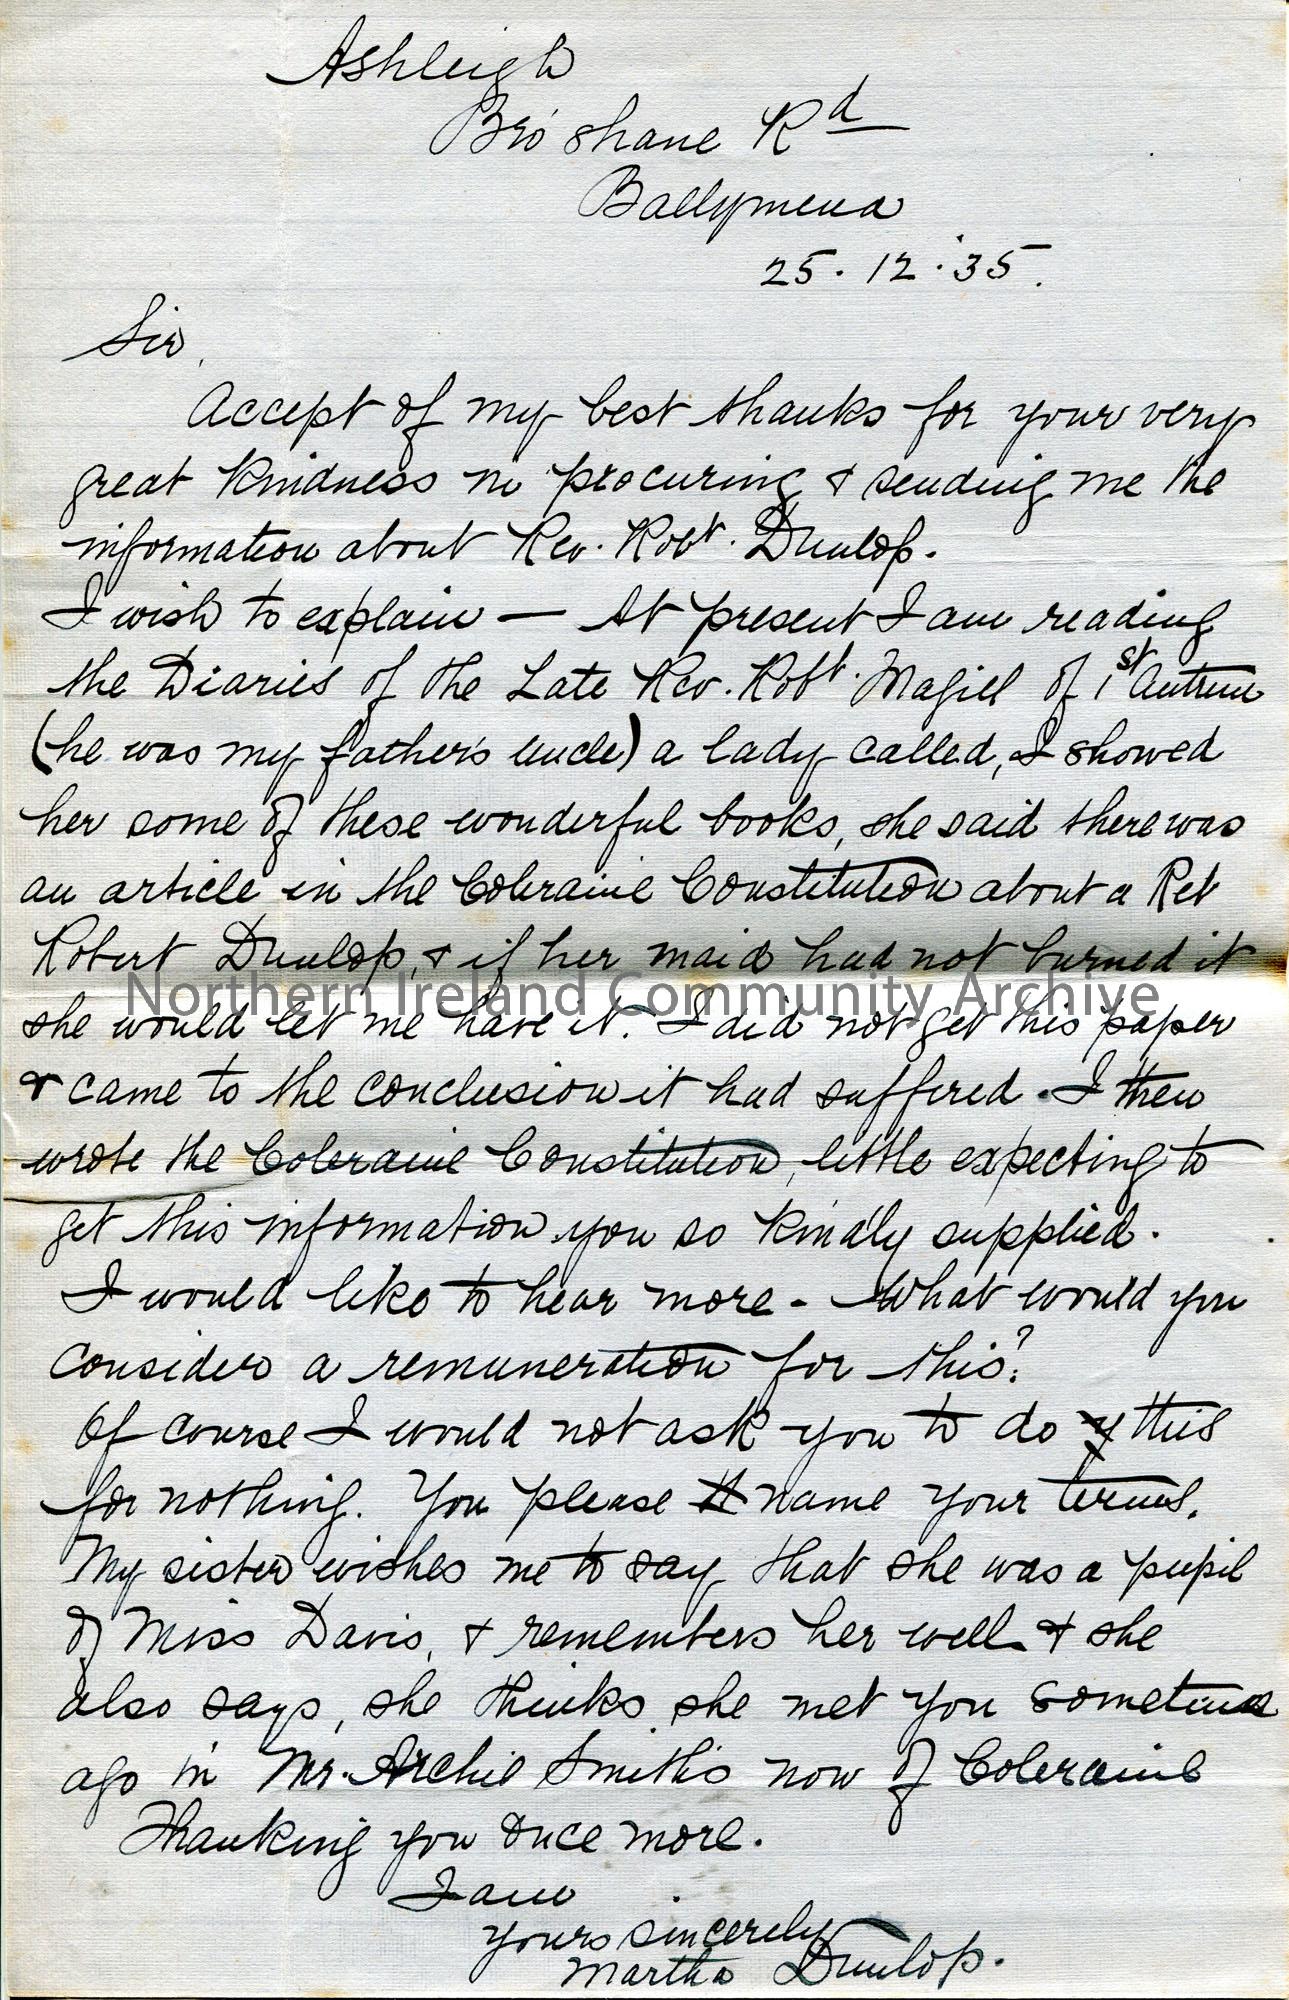 Ashleigh
Bro'shane Rd
Ballymena
25.12.'35.
Sir,
Accept of my best thanks for your very
great kindness in procuring & sending me the
information about Rev. Robt. Dunlop.
I wish to explain — At present I am reading
the Diaries of the Late Rev. Robt. Magill of 1st Antrim
(he was my father's uncle) a lady called, I showed
her some of these wonderful books, she said there was
an article in the Coleraine Constitution about a Rev
Robert Dunlop, & if her maid had not burned it
Northern Ireland Community Archive
she would let me have it. I did not get this paper
& came to the conclusion it had suffered. I then
wrote the Coleraine Constitution, little expecting to
get this information you so kindly supplied.
I would like to hear more - What would you
consider a remuneration for this?
Of course I would not ask you to do this
for nothing. You please name your terms.
My sister wishes me to say that she was a pupil
of Miss Davis, & remembers her well & she
also says, she thinks she met you sometime
ago in Mr. Archie Smith's now of Coleraine
Thanking you once more.
I am
yours sincerely
Martha Dunlop.